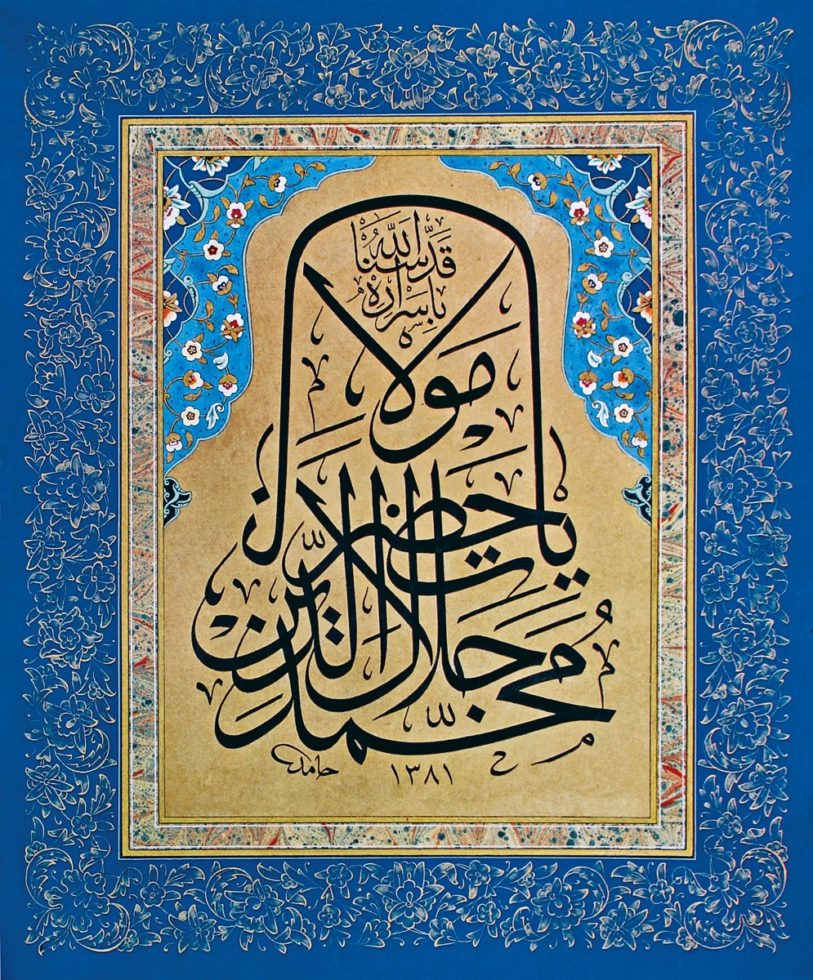 يا حضرت
مولانا
محمد
جلال الدين
قدسنا الله
باسراره
حامد ١٣٨١